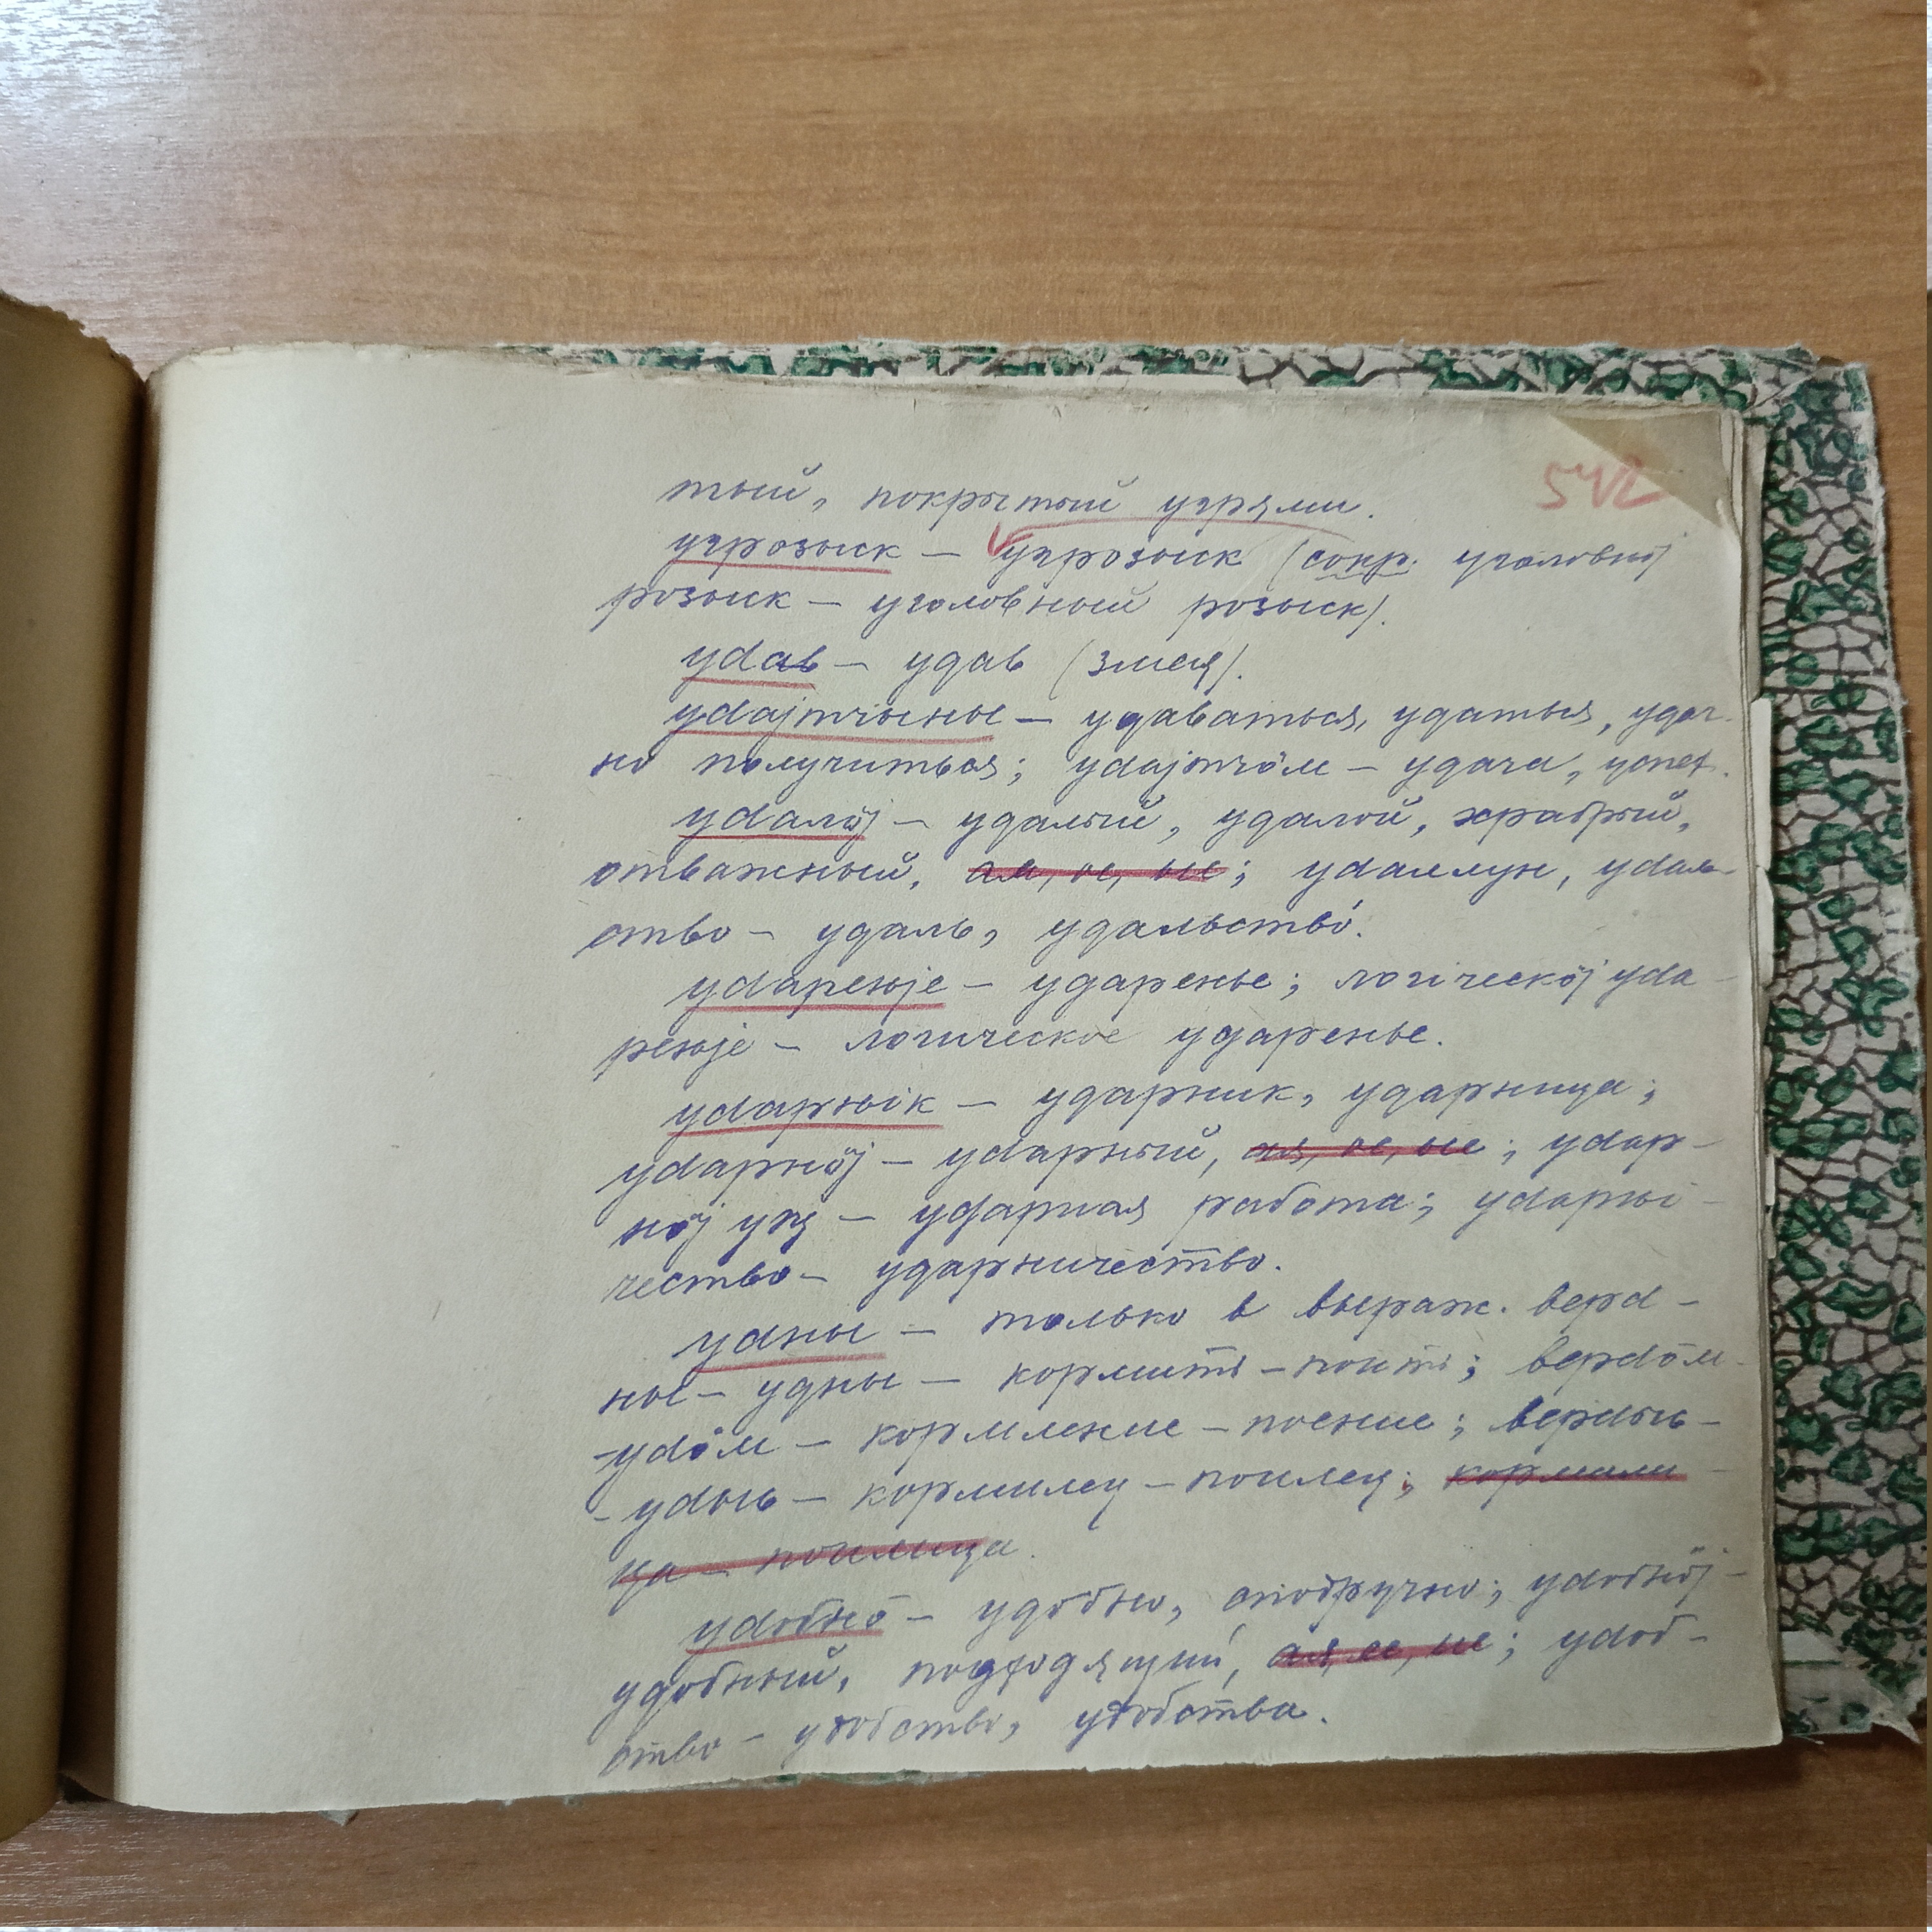 542
тый, покрытый угрями.
угрозыск – угрозыск (сокр. уголовнӧј
розыск – уголовный розыск).
уdав – удав (змея).
уdајтчыны – удаваться, удаться, удач-
но получиться; уdајтчӧм – удача, успех.
уdалӧј – удалый, удалой, храбрый,
отважный, ая, ое, ые; уdаллун, уdаль-
ство – удаль, удальство.
уdареԋԋе – ударенье; логіческӧј уdа-
реԋԋе – логическое ударенье.
уdарԋік – ударник, ударница;
уdарнӧј – уdарный, ая, ое, ые; уdар-
нӧј уҗ – ударная работа; уdарԋі-
чество – ударничество.
уdны – только в выраж. верd-
ны – удны – кормить – поить; верdӧм-
-уdӧм – кормление – поение; верdыԍ-
-уdыԍ – кормилец – поилец; кормили-
ца – поилица.
уdобнӧ – удобно, сподручно; уdобнӧј –
удобный, подходящий, ая, ее, ие; уdоб-
ство – удобство, удобства.